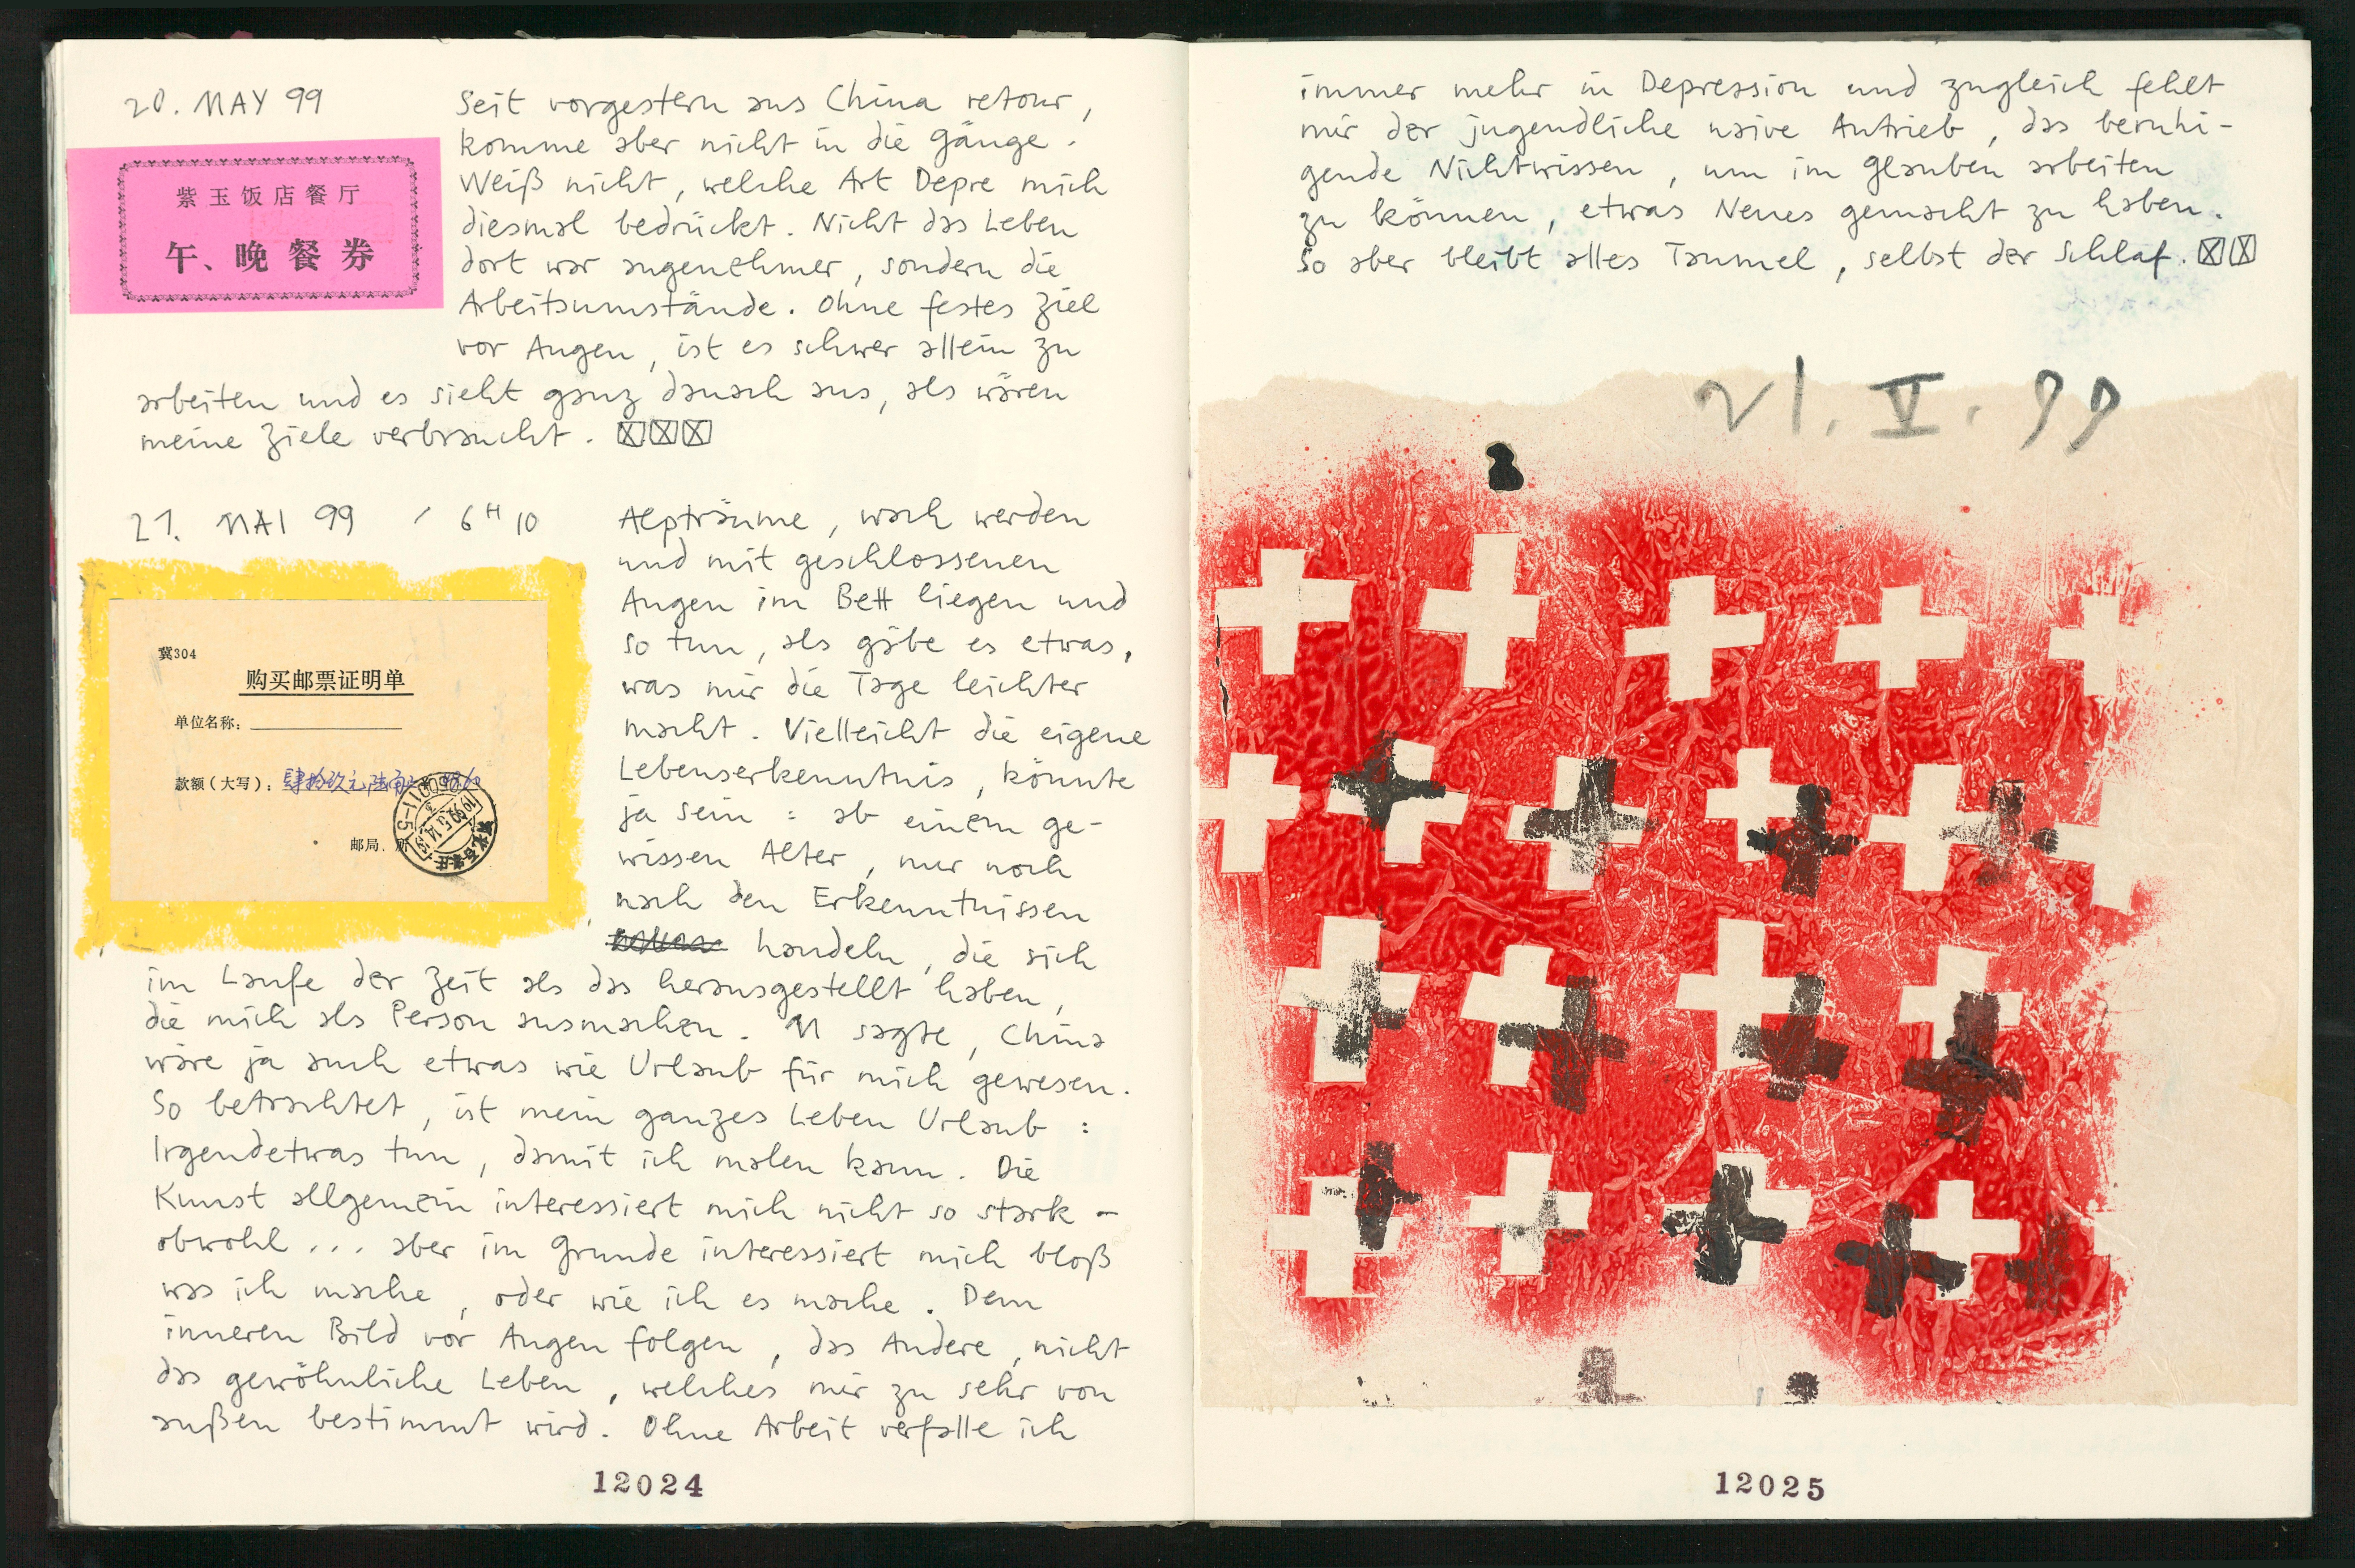 20. MAY 99
Seit vorgestern aus China retour,
komme aber nicht in die Gänge.
Weiß nicht, welche Art Depre mich
diesmal bedrückt. Nicht das Leben
dort war angenehmer, sondern die
Arbeitsumstände. Ohne festes Ziel
vor Augen, ist es schwer allein zu
arbeiten und es sieht ganz danach aus, als wären
meine Ziele verbraucht. ☒☒☒
紫玉饭店餐厅
午、晚餐券
21. MAI 99 / 6H10
Alpträume, wach werden
und mit geschlossenen
Augen im Bett liegen und
so tun, als gäbe es etwas,
was mir die Tage leichter
macht. Vielleicht die eigene
Lebenserkenntnis, könnte
ja sein: ab einem ge-
wissen Alter, nur noch
nach den Erkenntnissen
handeln, die sich
im Laufe der Zeit als das herausgestellt haben,
die mich als Person ausmachen. M sagte, China
wäre ja auch etwas wie Urlaub für mich gewesen.
So betrachtet, ist mein ganzes Leben Urlaub:
Irgendetwas tun, damit ich malen kann. Die
Kunst allgemein interessiert mich nicht so stark -
obwohl... aber im Grunde interessiert mich bloß
was ich mache, oder wie ich es mache. Dem
inneren Bild vor Augen folgen, das Andere, nicht
das gewöhnliche Leben, welches mir zu sehr von
außen bestimmt wird. Ohne Arbeit verfalle ich
冀304
购买邮票证明单
单位名称:
款额(大写): 肆拾玖元陆角
邮局、所
12024
immer mehr in Depression und zugleich fehlt
mir der jugendliche naive Antrieb, das beruhi-
gende Nichtwissen, um im Glauben arbeiten
zu können, etwas Neues gemacht zu haben.
So aber bleibt alles Taumel, selbst der Schlaf. ☒☒
21. V. 99
12025